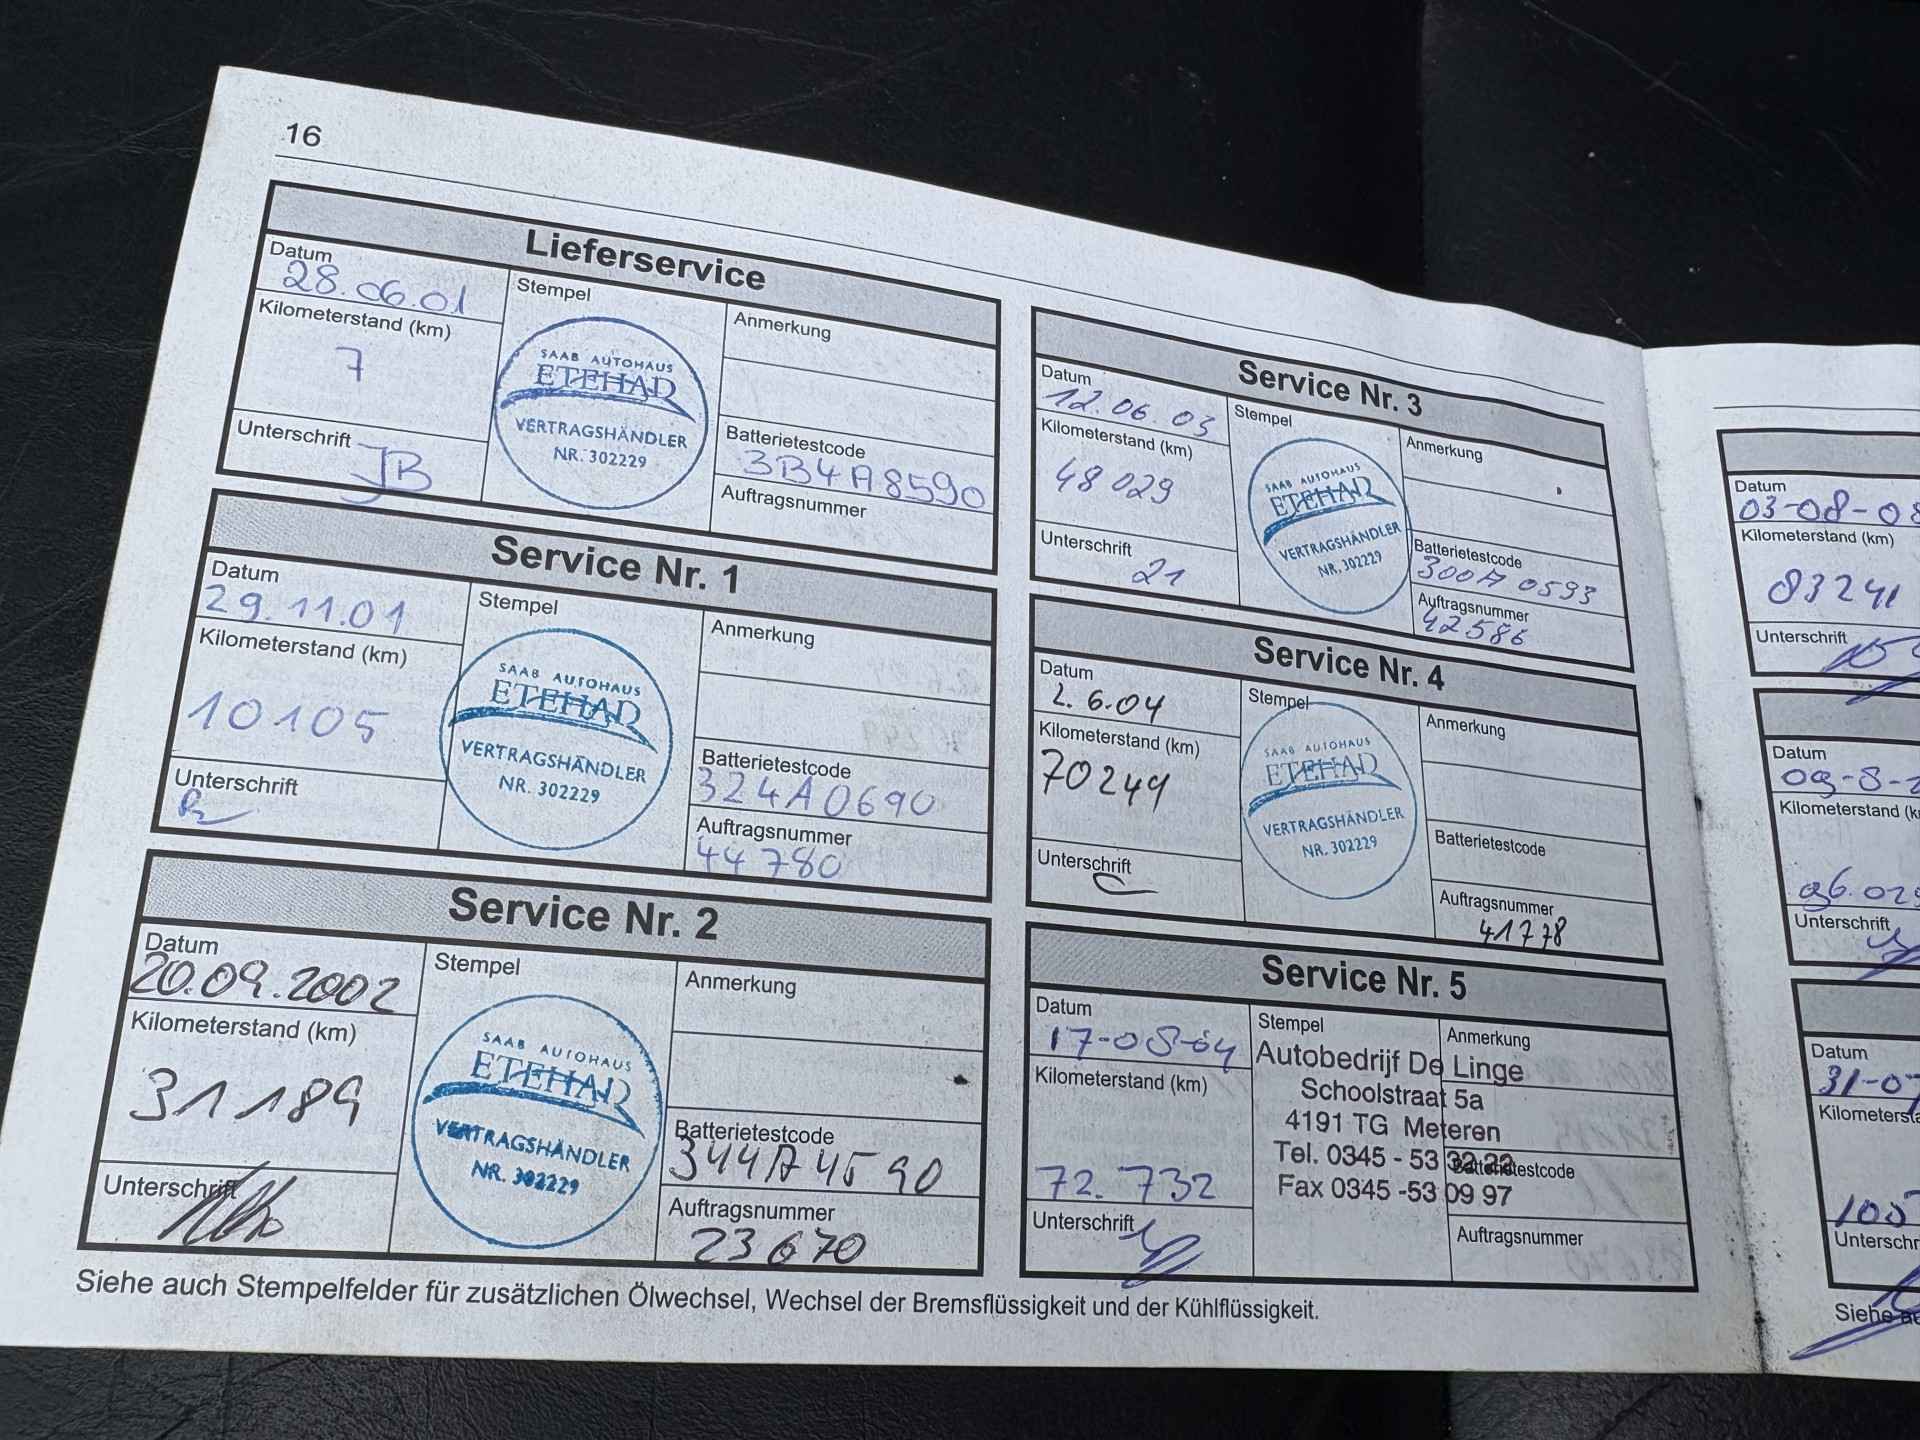 16
Lieferservice
Datum
28.06.01
Kilometerstand (km)
7
Unterschrift
JB
Stempel
SAAB AUTOHAUS
ETEHAD
VERTRAGSHÄNDLER
NR. 302229
Anmerkung
Batterietestcode
3B4A8590
Auftragsnummer
Service Nr. 1
Datum
29.11.01
Kilometerstand (km)
10105
Unterschrift
Stempel
SAAB AUTOHAUS
ETEHAD
VERTRAGSHÄNDLER
NR. 302229
Anmerkung
Batterietestcode
324A0690
Auftragsnummer
44780
Service Nr. 2
Datum
20.09.2002
Kilometerstand (km)
31189
Unterschrift
Stempel
SAAB AUTOHAUS
ETEHAD
VERTRAGSHÄNDLER
NR. 302229
Anmerkung
Batterietestcode
344A4590
Auftragsnummer
23670
Siehe auch Stempelfelder für zusätzlichen Ölwechsel, Wechsel der Bremsflüssigkeit und der Kühlflüssigkeit.
Service Nr. 3
Datum
12.06.03
Kilometerstand (km)
48029
Unterschrift
Stempel
SAAB AUTOHAUS
ETEHAD
VERTRAGSHÄNDLER
NR. 302229
Anmerkung
Batterietestcode
300A0593
Auftragsnummer
42586
Service Nr. 4
Datum
2.6.04
Kilometerstand (km)
70249
Unterschrift
Stempel
SAAB AUTOHAUS
ETEHAD
VERTRAGSHÄNDLER
NR. 302229
Anmerkung
Batterietestcode
Auftragsnummer
41778
Service Nr. 5
Datum
17-08-04
Kilometerstand (km)
72.732
Unterschrift
Stempel
Autobedrijf De Linge
Schoolstraat 5a
4191 TG Meteren
Tel. 0345 - 53 32 22
Fax 0345 -53 09 97
Anmerkung
Batterietestcode
Auftragsnummer
Datum
03-08-0
Kilometerstand (km)
83241
Unterschrift
Datum
09-8-
Kilometerstand (k
96.02
Unterschrift
Datum
31-07
Kilometersta
100
Unterschr
Siehe au